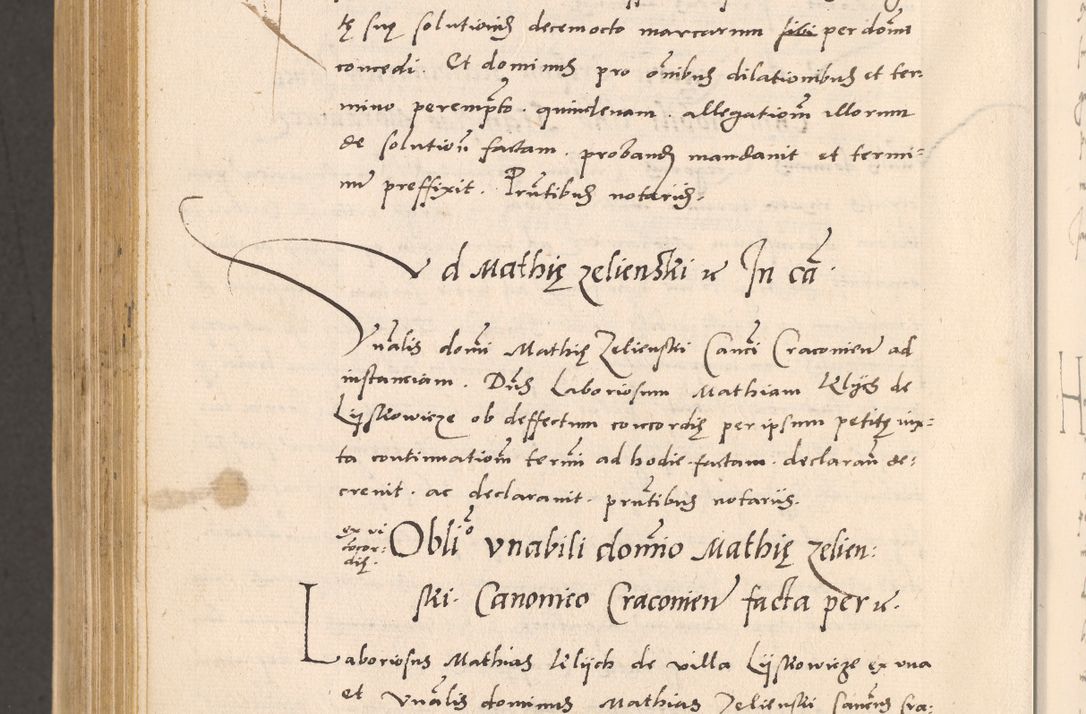 tę suę solutionis decemocto marcarum sibi per domi
concedi. Et dominus pro oñibus dilationibus et ter:
mino perempto. quindenam. allegationẽ illorum
de solutioñ factam. probandi mandavit et termi=
nũ preffixit. Pñtibus notariis.
Vd Mathię zelienski &c In cã.
Vñalis domĩ Mathię Zelienski Canci Cracoнien ad
instanciam. Dñs Laboriosum Mathiam Klyçh de
Lyskowicze ob deffectum concordię per ipsum petitę iux=
ta continuationẽ termĩ ad hodie factam. declarañ de:
crevit. ac declaravit. pñtibus notariis.
ex vi
cõcor:
dię.
Oblio vnabili domĩo Mathię zelien:
ski. Canonico Cracovien facta per &c.
Laboriosus Mathias Klych de villa Lyskowicze ex una
et vñalis dominus Mathias Zelienski Cancus Cra: